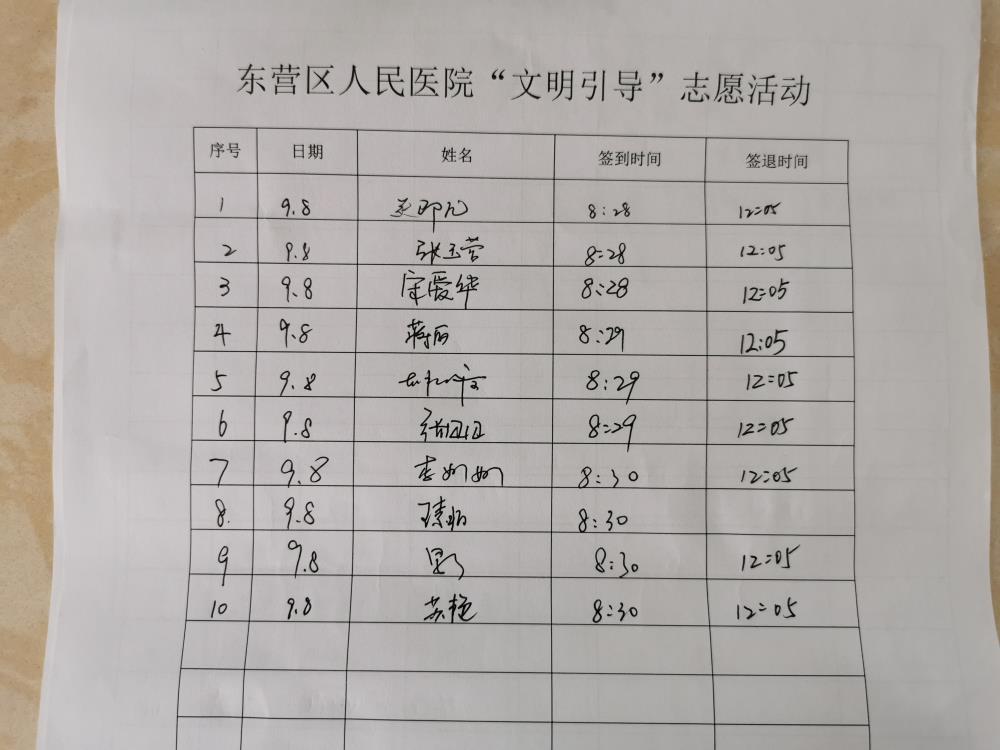 东营区人民医院“文明引导”志愿活动
序号 日期 姓名 签到时间 签退时间
1 9.8 8:28 12:05
2 9.8 张玉营 8:28 12:05
3 9.8 宋爱华 8:28 12:05
4 9.8 蒋丽 8:29 12:05
5 9.8 8:29 12:05
6 9.8 8:29 12:05
7 9.8 李娜娜 8:30 12:05
8. 9.8 8:30
9 9.8 8:30 12:05
10 9.8 苏艳 8:30 12:05